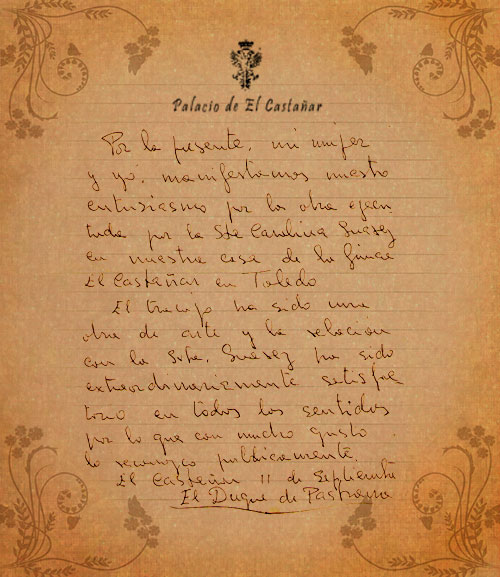 Palacio de El Castañar
Por la presente, mi mujer
y yo, manifestamos nuestro
entusiasmo por la obra ejecu
tada por la Sta Carolina Suarez
en nuestra casa de la finca
El Castañar en Toledo
El trabajo ha sido una
obra de arte y la relacion
con la Srta. Suarez ha sido
extraordinariamente satisfac
torio en todos los sentidos
por lo que con mucho gusto
lo reconozco publicamente.
El Castañar 11 de Septiembre
El Duque de Pastrana